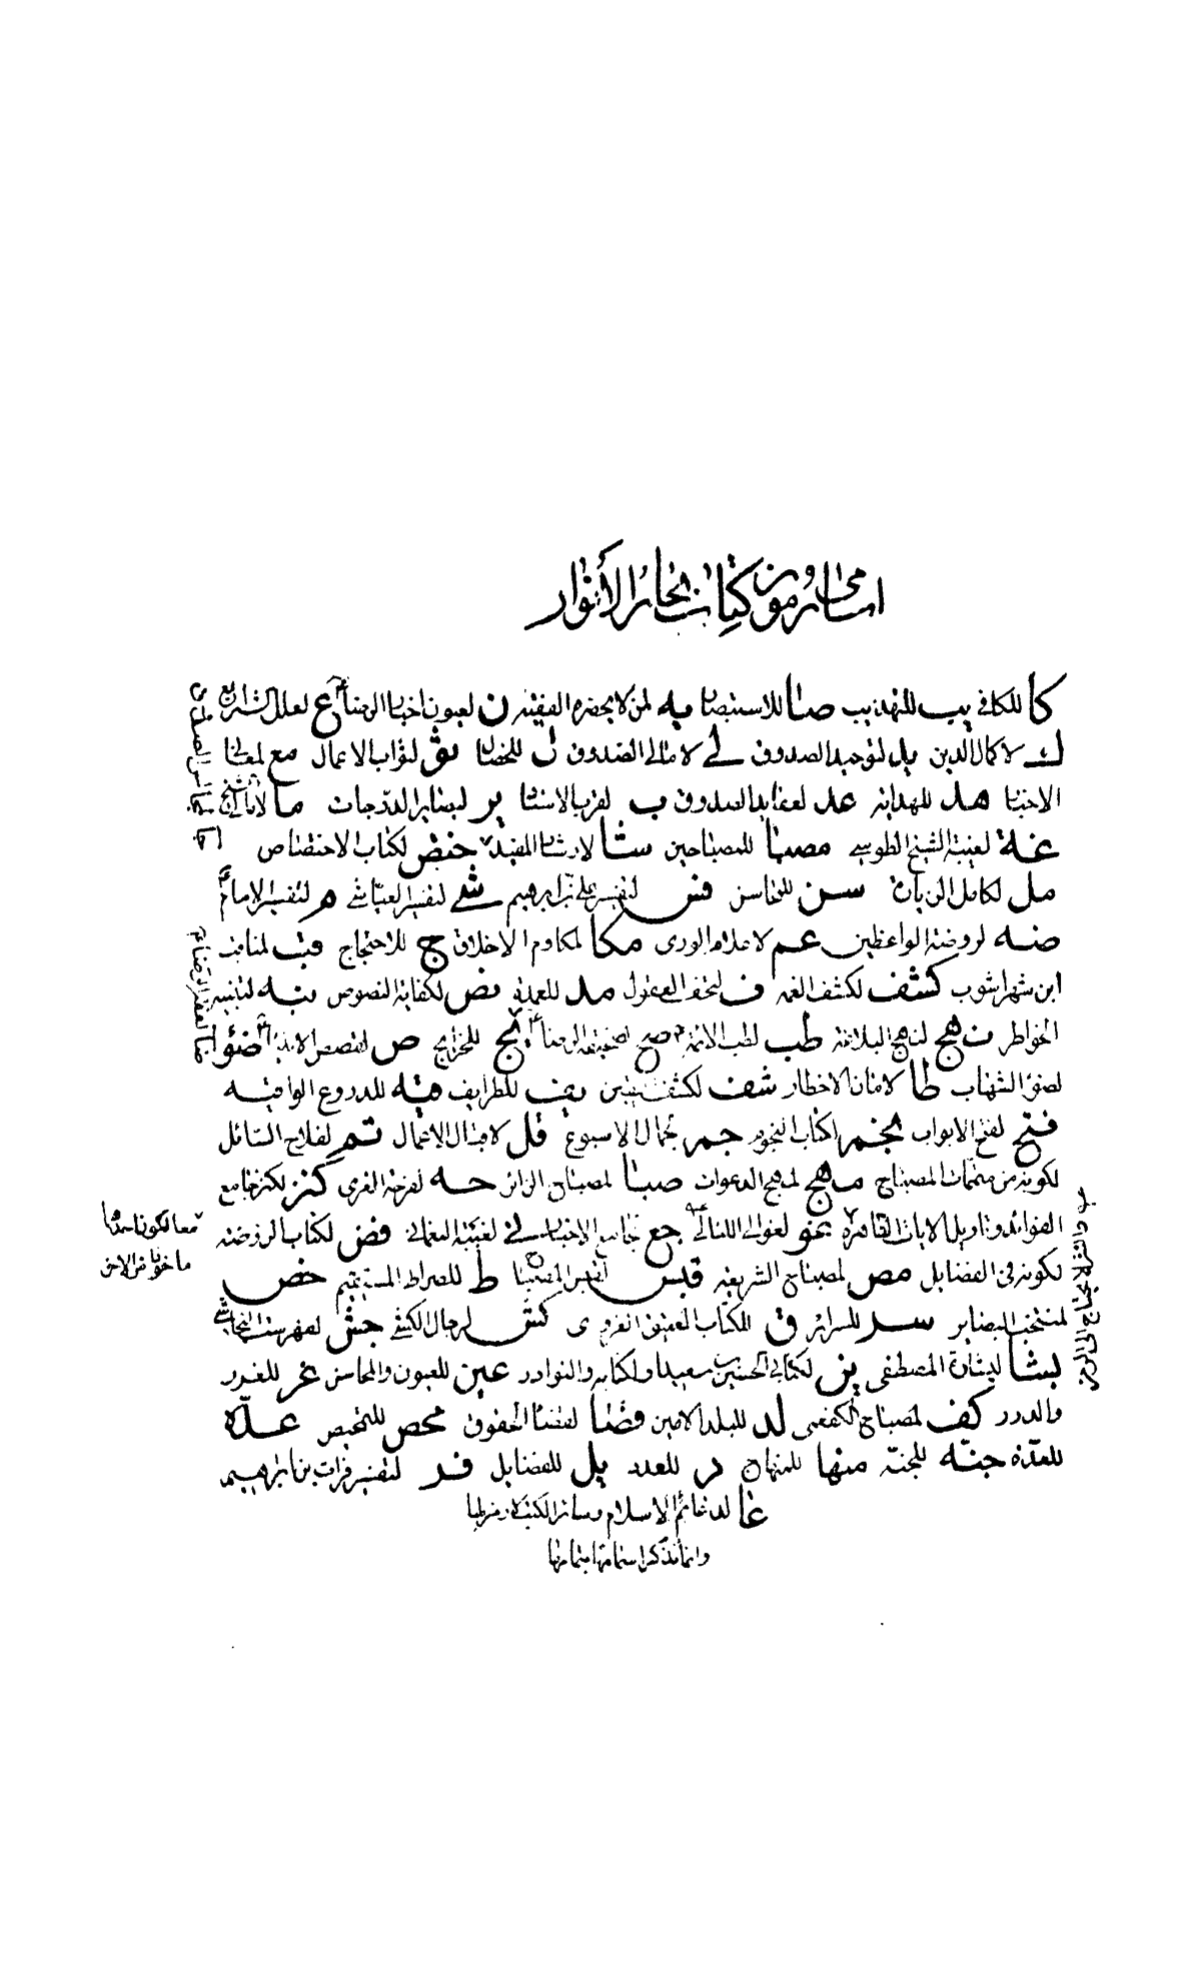 اسامی رموز کتاب بحار الأنوار
کا للکافی یب للتهذیب صا للاستبصار یه لمن لا یحضره الفقیه ن لعیون اخبار الرضا ع لعلل الشرایع
ک لاکمال الدین ید لتوحید الصدوق لی لامالی الصدوق ل للخصال ثو لثواب الاعمال مع لمعانی
الاخبار هد للهدایة عد لعقاید الصدوق ب لقرب الاسناد یر لبصایر الدرجات ما لامالی الشیخ
غط لغیبة الشیخ الطوسی مصبا للمصباحین شا لارشاد المفید ختص لکتاب الاختصاص
مل لکامل الزیارة سن للمحاسن فس لتفسیر علی بن ابرهیم شی لتفسیر العیاشی م لتفسیر الامام
ضه لروضة الواعظین عم لاعلام الوری مکا لمکارم الاخلاق ج للاحتجاج قب لمناقب
ابن شهراشوب کشف لکشف الغمه ف لتحف العقول مد للعمدة نص لکفایة النصوص نبه لتنبیه
الخواطر نهج لنهج البلاغة طب لطب الائمة صح لصحیفة الرضا یج للخرایج ص لقصص الانبیاء ضوا
لضوء الشهاب طا لامان الاخطار شف لکشف الیقین یف للطرایف قیه للدروع الواقیه
فتح لفتح الابواب نجم لکتاب النجوم جم لجمال الاسبوع قل لاقبال الاعمال تم لفلاح السائل
لکونه من متممات المصباح مهج لمهج الدعوات صبا لمصباح الزائر حه لفرحة الغری کنز لکنز جامع
الفوائد وتاویل الایات الظاهرة غو لغوالی اللئالی جع لجامع الاخبار نی لغیبة النعمانی فض لکتاب الروضه
لکونه فی الفضایل مص لمصباح الشریعه قبس لقبس المصباح ط للصراط المستقیم خص
لمنتخب البصایر سر للسرائر ق للکتاب العتیق الغروی کش لرجال الکشی جش لفهرست النجاشی
بشا لبشارة المصطفی ین لکتابی الحسین بن سعید او لکتابه والنوادر عین للعیون والمحاسن غر للغرر
والدرر کف لمصباح الکفعمی لد للبلد الامین قضا لقضاء الحقوق محص للتمحیص عدة
للعدة جنه للجنة منها للمنهاج د للعدد یل للفضایل فر لتفسیر فرات بن ابرهیم
عا لدعائم الاسلام وسائر الکتب لا رمز لها
وانما نذکر اسمائها بتمامها
معا لکون احدهما
ماخوذا من الاخر